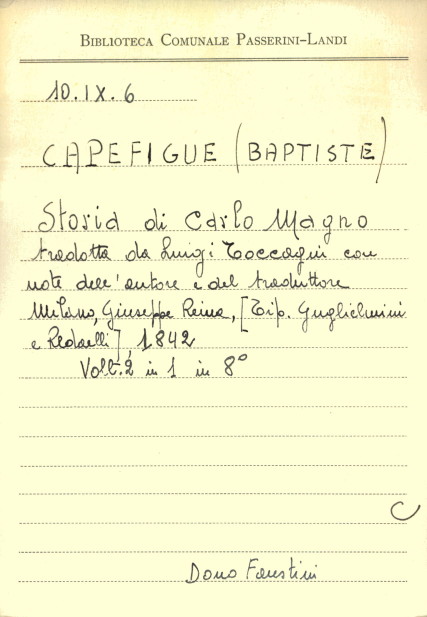 BIBLIOTECA COMUNALE PASSERINI-LANDI
10.IX.6
CAPEFIGUE (BAPTISTE)
Storia di Carlo Magno
tradotta da Luigi Toccagni con
note dell'autore e del traduttore
Milano, Giuseppe Reina, [Tip. Guglielmini
e Redaelli], 1842
Voll. 2 in 1 in 8°
C
Dono Faustini